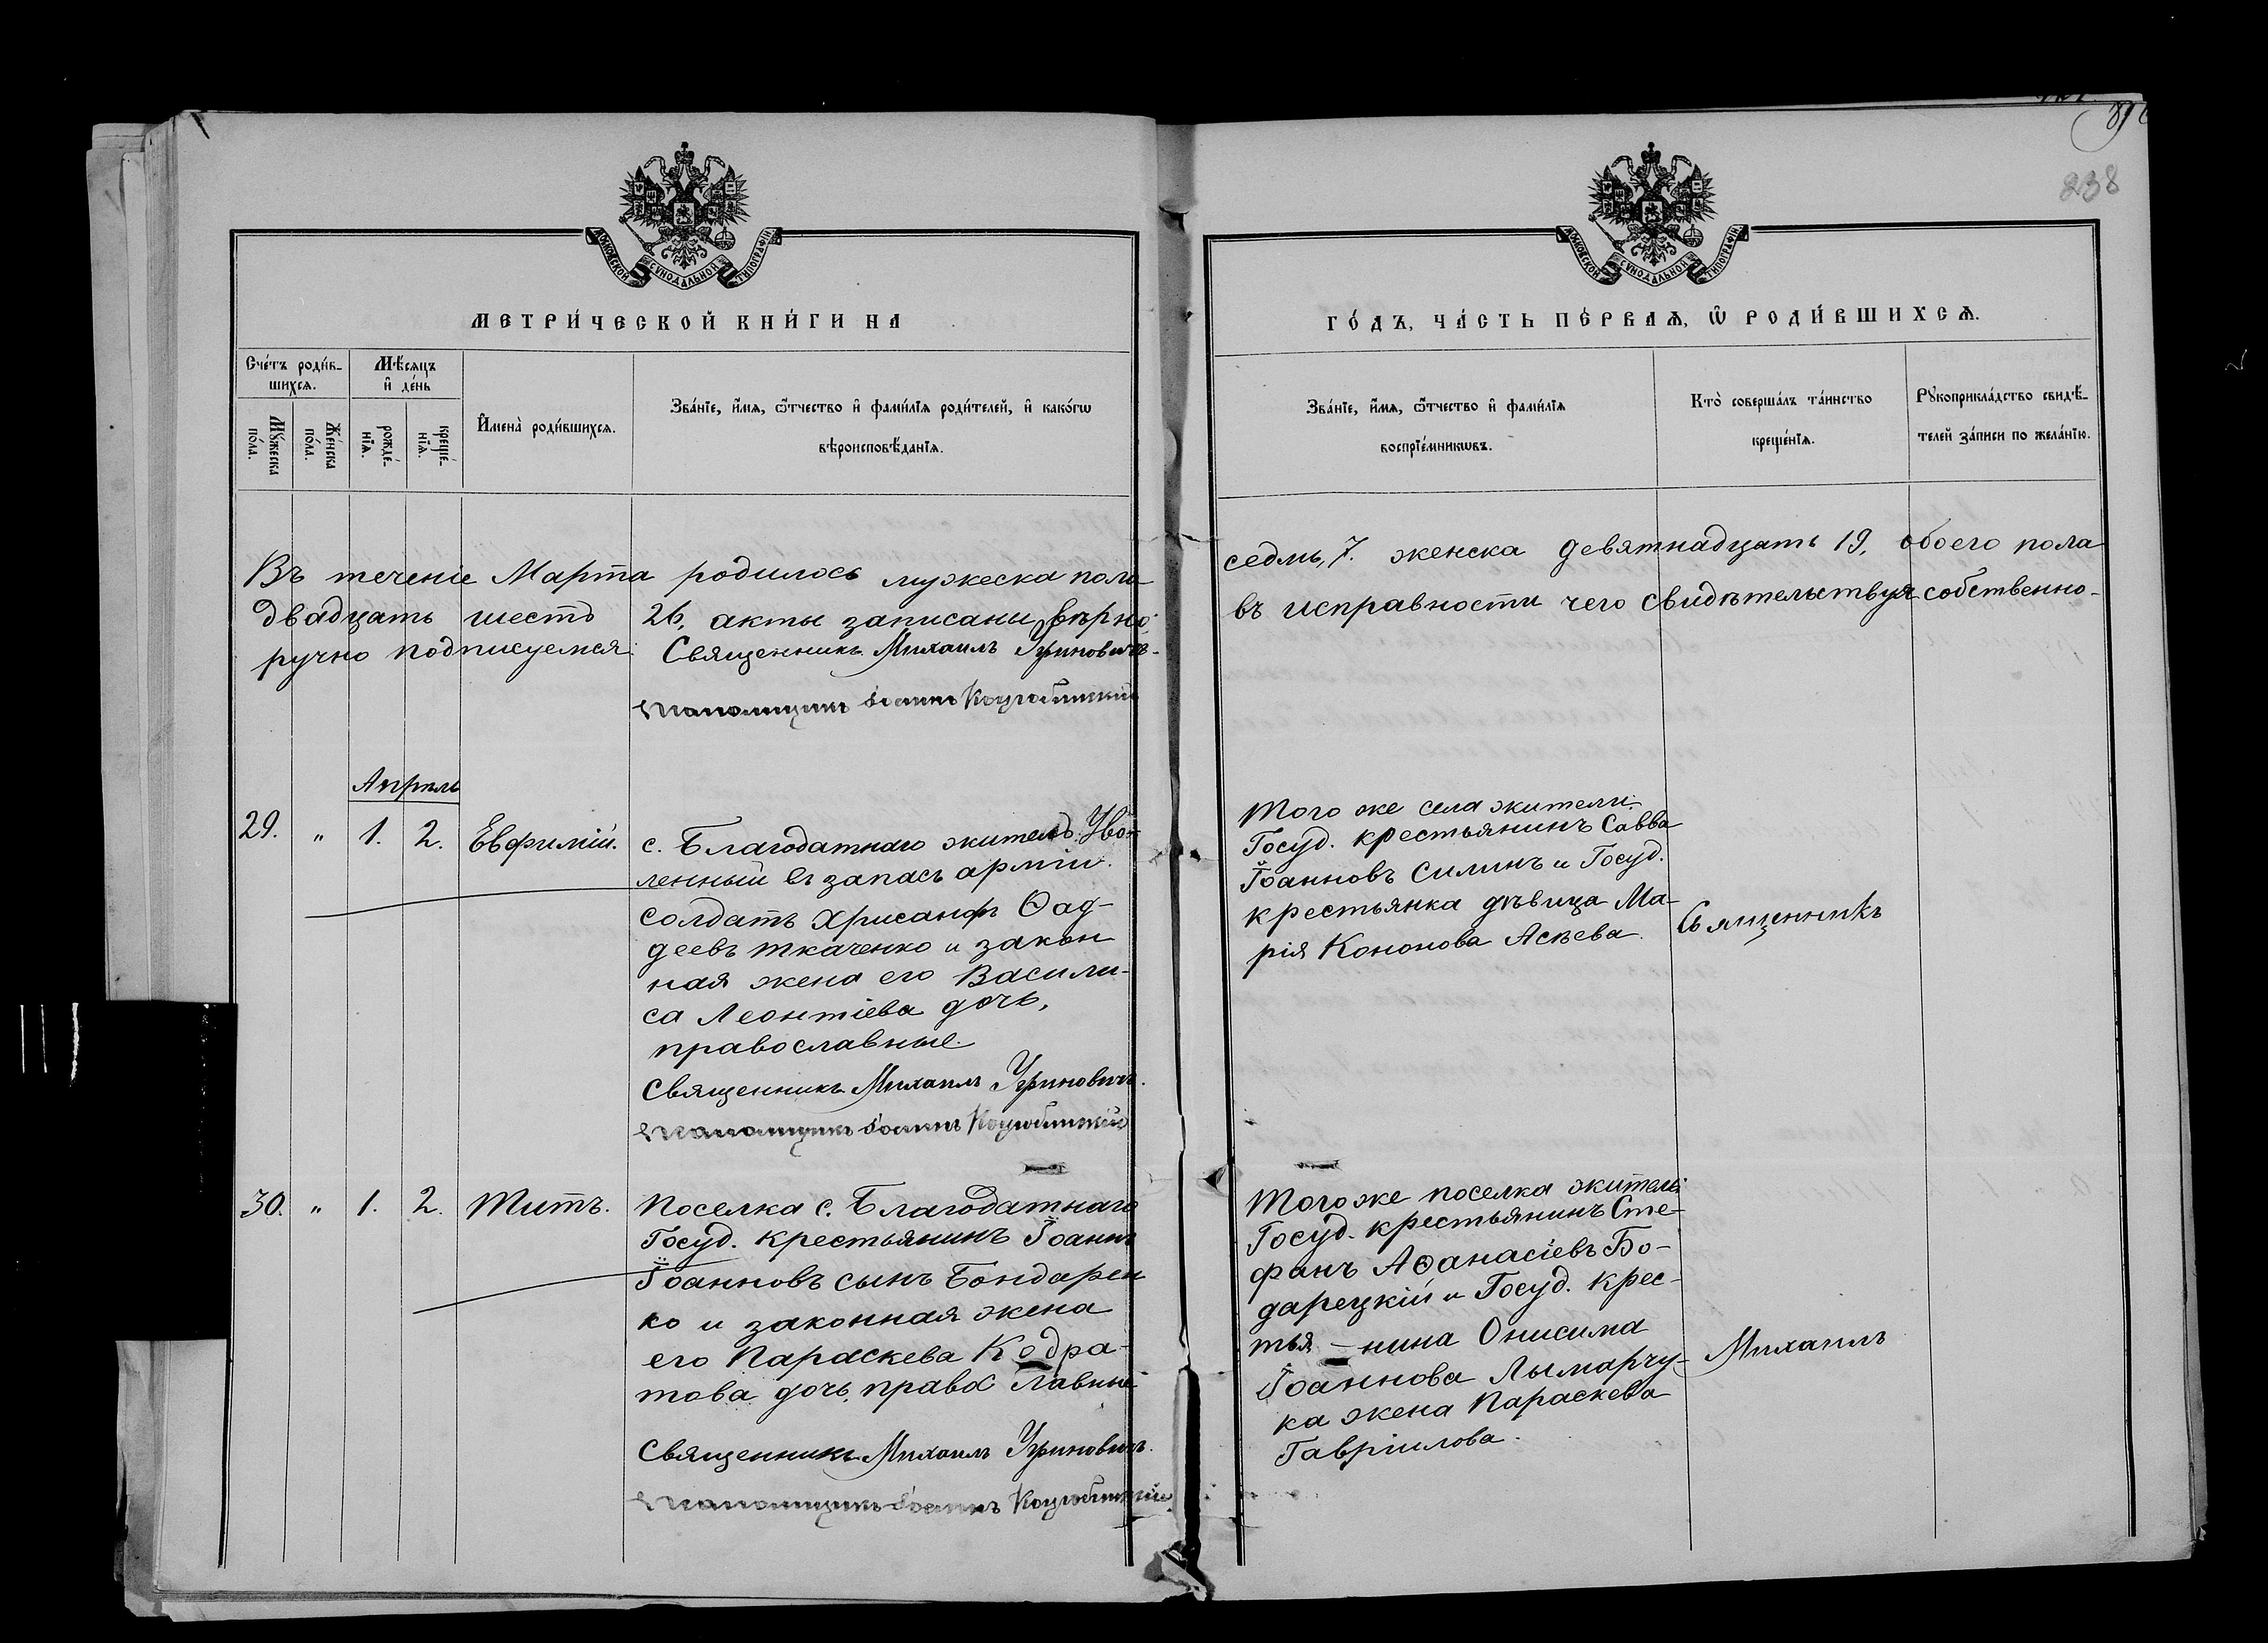 838
МОСКОВСКОЙ СУНОДАЛЬНОЙ ТИПОГРАФІИ
МЕТРИ́ЧЕСКОЙ КНИ́ГИ НА
Сче́тъ роди́в-
шихсѧ.
Мѣ́сяцъ
и҆ де́нь
Мꙋ́жеска
по́ла.
Же́нска
по́ла.
рожде́-
нїѧ.
креще́-
нїѧ.
И҆мена̀ роди́вшихсѧ.
Зва́нїе, и҆́мѧ, ѻ҆́тчество и҆ фами́лїѧ роди́телей, и҆ како́гѡ
вѣроисповѣ́данїѧ.
Въ теченіе Марта родилось мужеска пола
двадцать шесть 26, акты записаны вѣрно
ручно подписуемся: Священникъ Михаилъ
Апрѣль
29. " 1. 2. Евфимій.
с. Благодатнаго житель: Уво-
ленный въ запасъ арміи
солдатъ Хрисанфъ Ѳад-
деевъ Ткаченко и закон
ная жена его Васили-
са Леонтіева дочь,
православные.
Священникъ Михаилъ
30. " 1. 2. Титъ.
Поселка с. Благодатнаго
Госуд. крестьянинъ Іоаннъ
Іоанновъ сынъ Бондарен
ко и законная жена
его Параскева Кодра-
това дочь, православные
Священникъ Михаилъ
МОСКОВСКОЙ СУНОДАЛЬНОЙ ТИПОГРАФІИ
ГО́ДЪ, ЧА́СТЬ ПЕ́РВАѦ, Ѽ РОДИ́ВШИХСѦ.
Зва́нїе, и҆́мѧ, ѻ҆́тчество и҆ фами́лїѧ
воспрїе́мникѡвъ.
Кто̀ соверша́лъ та́инство
креще́нїѧ.
Рꙋкоприкла́дство свидѣ́-
телей за́писи по жела́нїю.
седмь, 7. женска девятнадцать 19, обоего пола
въ исправности чего свидѣтельствуя собственно-
Того же села жители:
Госуд. крестьянинъ Савва
Іоанновъ Силинъ и Госуд.
крестьянка дѣвица Ма-
рія Кононова Асѣева.
Священникъ
Того же поселка жители:
Госуд. крестьянинъ Сте-
фанъ Аѳанасіевъ Бо-
дарецкій и Госуд. крес-
тья - нина Онисима
Іоаннова Лымарчу-
ка жена Параскева
Гавріилова.
Михаилъ